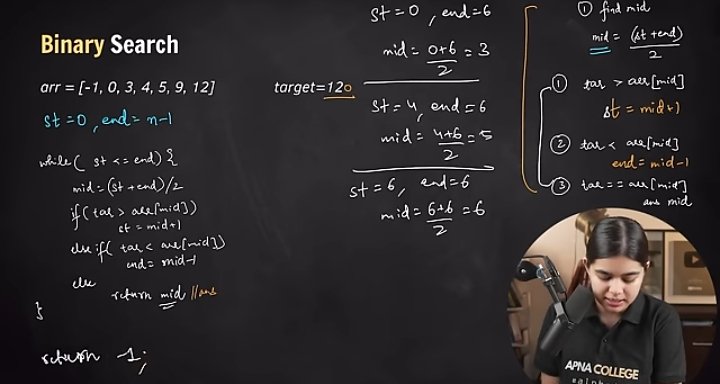 Binary Search
arr = [-1, 0, 3, 4, 5, 9, 12]
st = 0, end = n-1
while( st <= end) {
mid = (st + end)/2
if( tar > arr[mid])
st = mid+1
else if( tar < arr[mid])
end = mid-1
else
return mid //ans
}
return -1;
target=120
st = 0, end = 6
mid = 0+6 = 3
2
st = 4, end = 6
mid = 4+6 = 5
2
st = 6, end = 6
mid = 6+6 = 6
2
① find mid
mid = (st + end)
2
① tar > arr[mid]
st = mid+1
② tar < arr[mid]
end = mid-1
③ tar == arr[mid]
ans mid
APNA COLLEGE